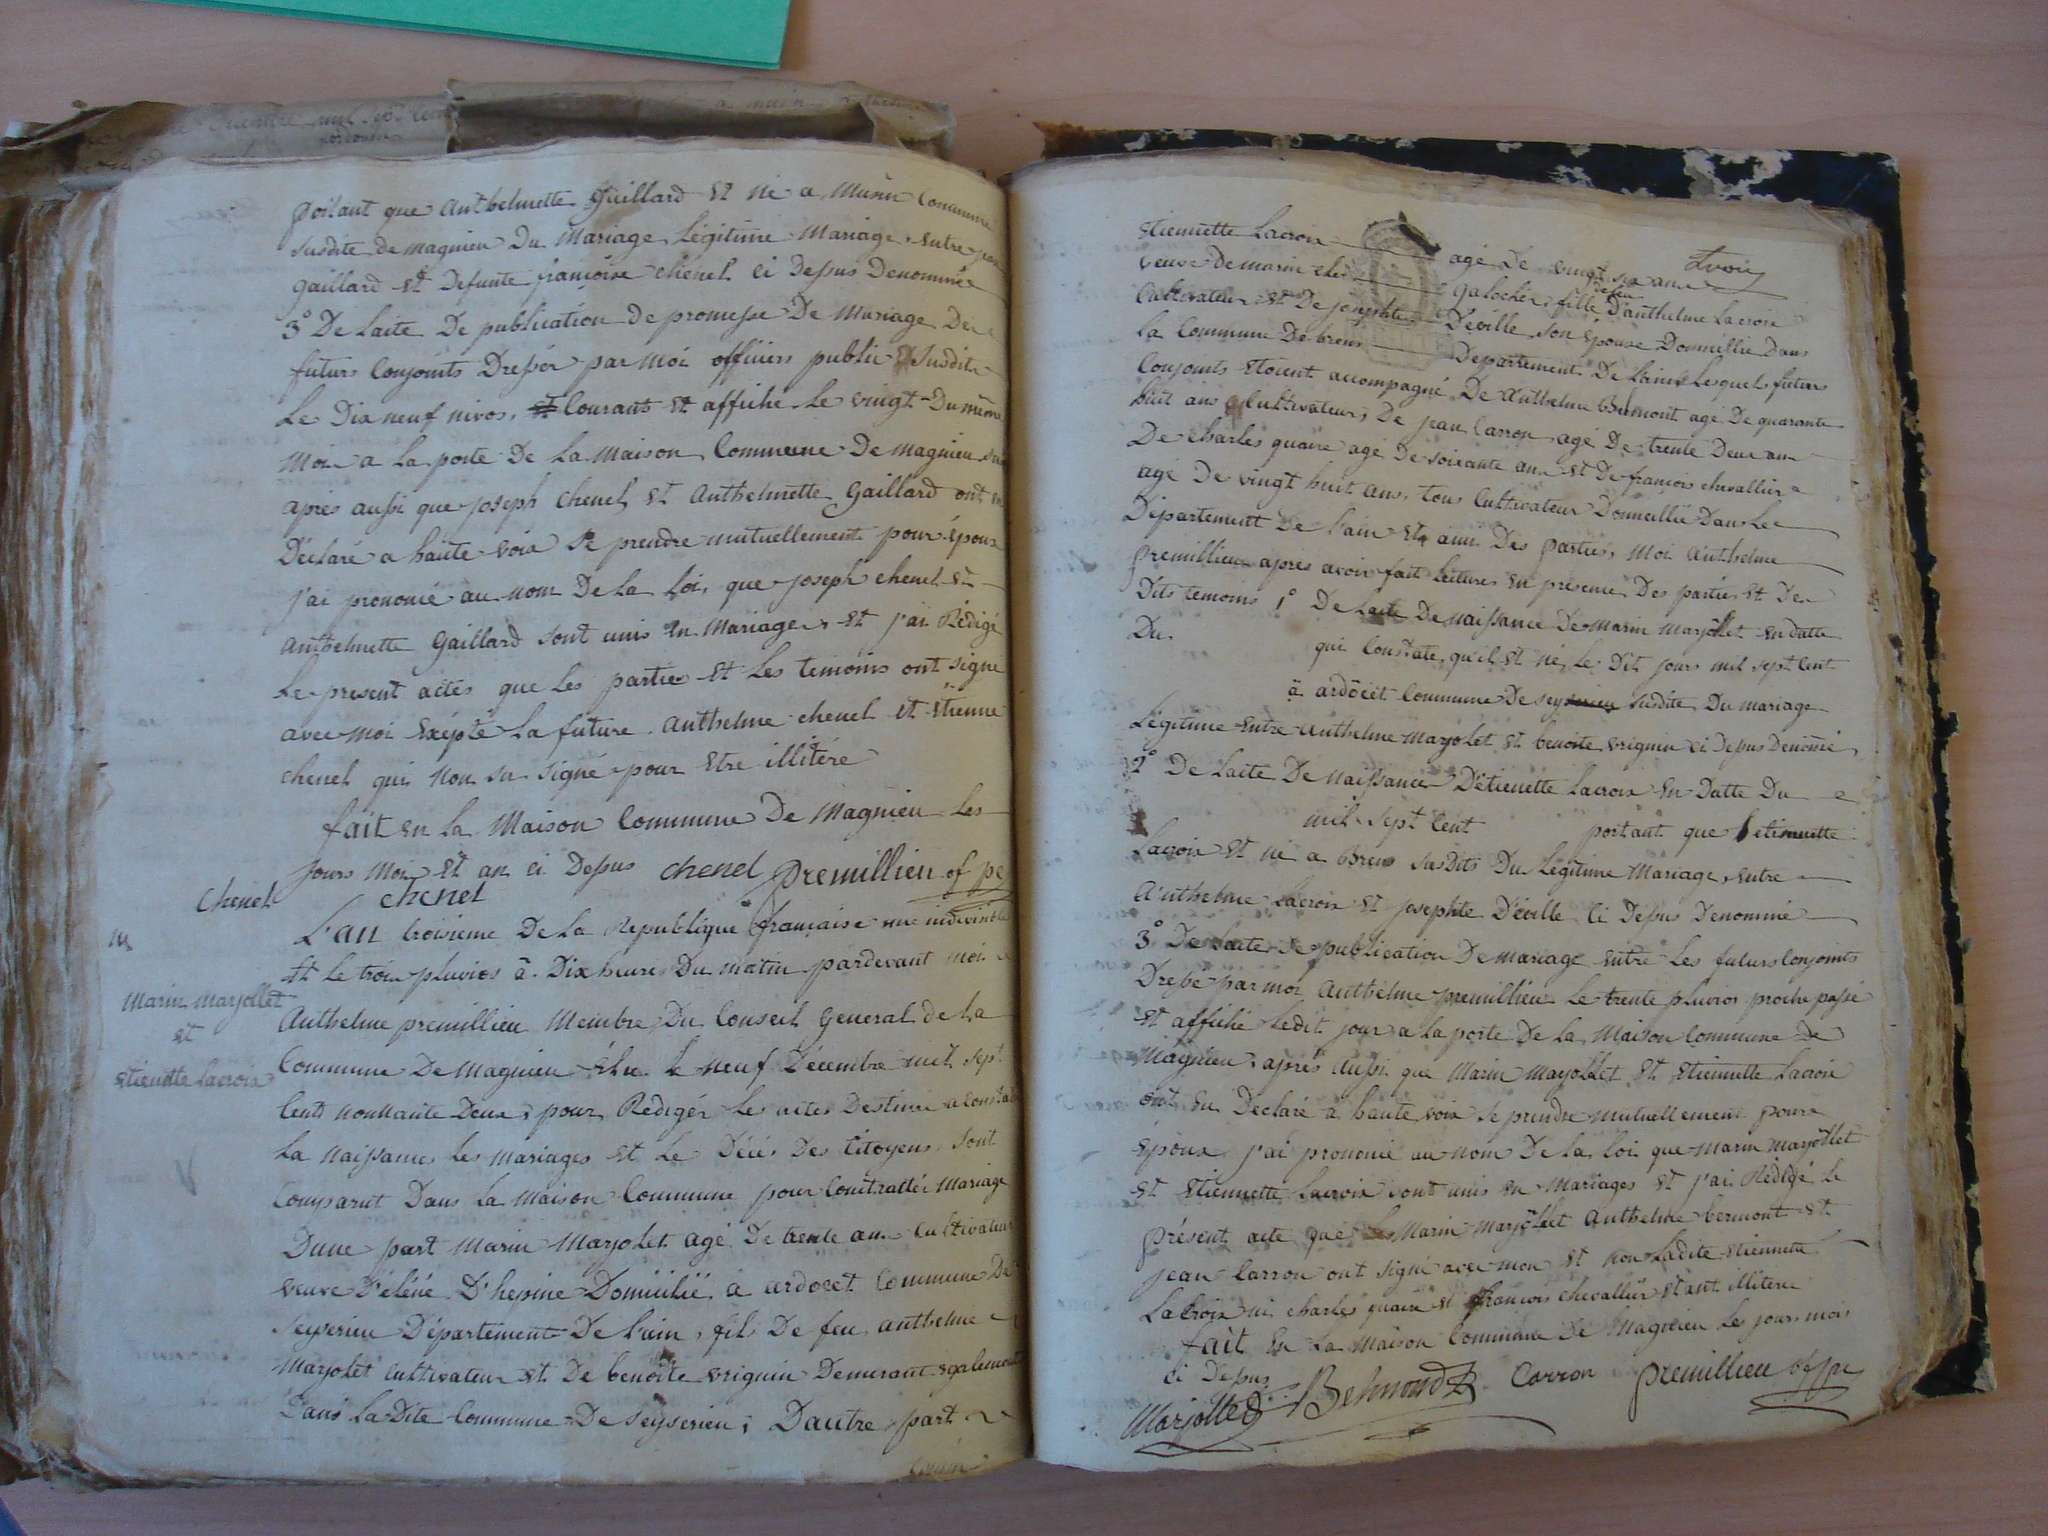 portant que anthelmette Guillard et né a Musin Commune
susdite de magnieu Du Mariage Légitime Mariage entre
gaillard et Defunte françoise chenel ci Dessus Denommée
3° De laite De publication de promesse De Mariage De
futurs Conjoints Dressér par Moi officiers public Susdite
Le Dix neuf nivos, Courant et affiché le vingt Du même
Mois a la porte De la Maison Commune De magnieu
après aussi que joseph chenel et Anthelmette gaillard ont
Déclaré a haute voix se prendre mutuellement pour époux
j'ai pronomé au nom De la Loi, que joseph chenel et
anthelmette gaillard sont unis en Mariages et j'ai Rédigé
Le present actes que les partie et les temoins ont signé
avec moi Exépté la future anthelme chenel et Etienne
chenel qui non su signé pour etre illitéré
fait en la Maison Commune De Magnieu les
jours Mois et an ci Dessus chenel premillieu of pe
Chenel chenel
L'an troisieme De la Republique française une indivisible
et le trois pluvios à Dix heures Du matin pardevant moi
Marin marjollet
et
etienette lacroix
Anthelme premillieu Membre Du Conseil General de la
Commune De Magnieu élu le neuf Décembre mil sept
Cent nonnante Deux, pour Redigér les actes Destinés a
La naissances les mariages et le Décés Des Citoyens sont
Comparut Dans la maison Commune pour Contrattér Mariage
Dune part Marin Marjolet agé De trente ans Cultivateur
veuve D'éléné D'hepine Domicilié à ardocet Commune De
seyserieu Département De l'ain, fils De feu anthelme
Marjolet Cultivateur et De benoite vriguin Demeurant egalement
Dans La Dite Commune De Seyserieu; Dautre part
Etienette Lacroix agé De vingt six ans
Veuve De marin galochér, fille D'anthelme Lacroix
Cultivateur et De josephte D'éville son épouse Domicillié Dans
La Commune De brens Departement De l'ain Lesquels futurs
Conjoints etoient accompagné De Anthelme agé De quarante
huit ans Cultivateur, De jean Carron agé De trente Deux ans
De charles quaire agé De soixante ans et De françois chevallier
agé De vingt huit ans, tous Cultivateur Domicillié Dans Le
Département De l'ain et amis Des parties, Moi Anthelme
premillieu après avoir fait lectures en presence Des parties et Des
Dits temoins 1° De laite De naissance De Marin marjollet en datte
Du qui Constate, qu'il et né, le Dit jours mil sept Cent
à ardocet Commune De susdite Du mariage
Légitime entre Anthelme Marjolet et benoite vriguin ci Dessus Denomé,
2° De laite De naissance D'étienette lacroix en Datte Du
mil sept Cent portant que etiennette
Lacroix et né a Brens susdits Du Légitime Mariage, entre
Anthelme lacroix et josephte D'éville Ci Dessus Denommé
3° De laite De publication De mariage entre Les futurs Conjoints
Dressé par moi Anthelme premillieu Le trente pluvios proche passé
et affiché Ledit jour a la porte De la Maison Commune de
Magnieu, après aussi que Marin Marjollet et etiennette Lacroix
ont eu Declaré à haute voix se prendre mutuellement pour
époux j'ai pronomé au nom De la loi que Marin Marjollet
et etiennette Lacroix sont unis en Mariages et j'ai Rédigé Le
présent acte que Marin Marjollet Anthelme bermont et
jean Carron ont signé avec moi et non Ladite etiennette
Lacroix ni charles quaire et françois chevallier etant illiteré
fait en La Maison Commune De Magnieu Les jours mois
ci Dessus
Marjollet Carron premillieu of pe